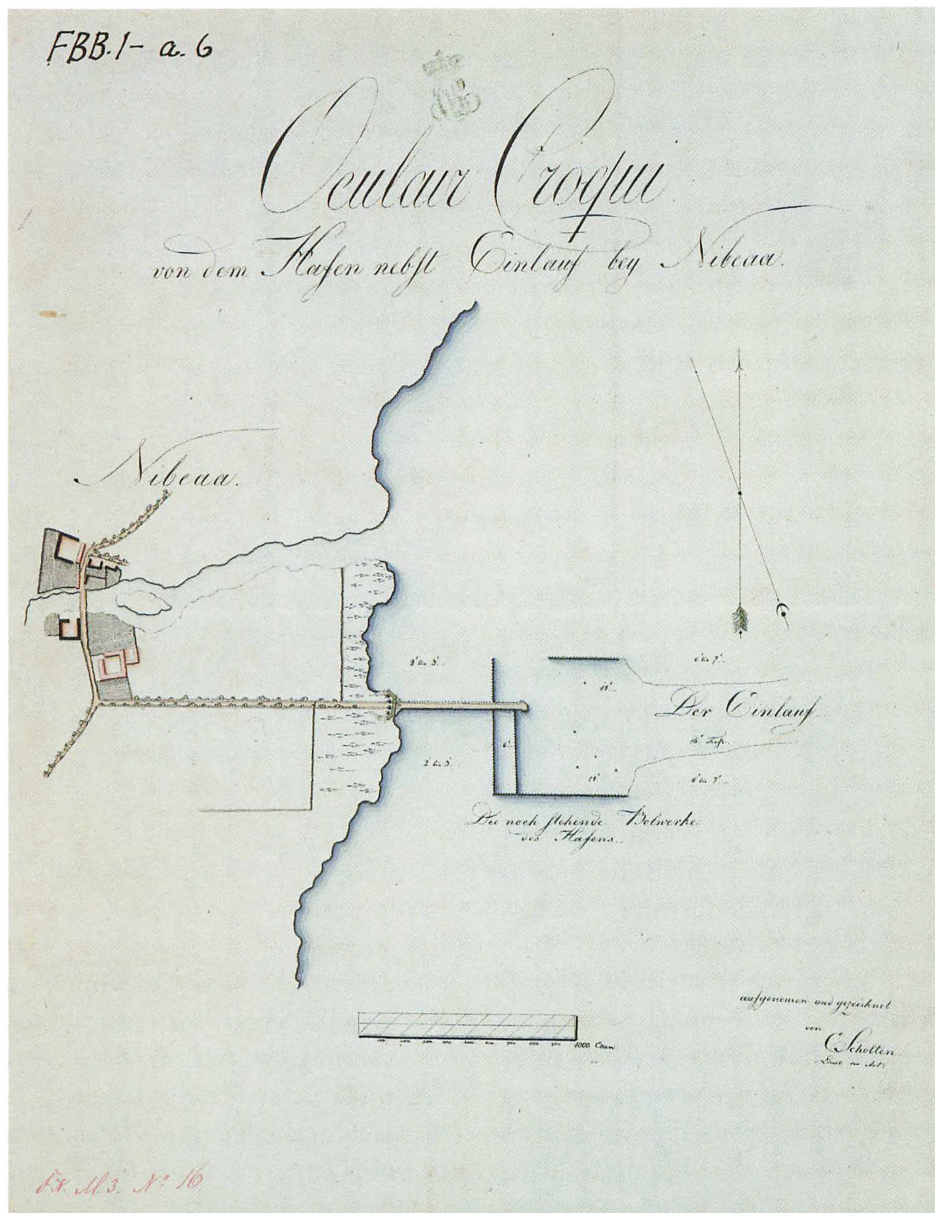 FBB.1- a. 6
Oculair Croqui
von dem Hafen nebst Einlauf bey Nibeaa.
Nibeaa.
2 bis 3.
6 bis 7.
Der Einlauf
6
2 bis 3.
6 bis 7.
Die noch stehende Bolwerke
des Hafens.
aufgenomen und gezeichnet
von
C Scholten
1000
M. 3. No 16